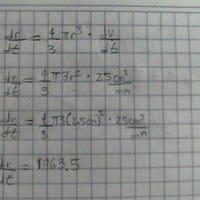 dr/dt = 4/3 πr³ · dv/dt
dr/dt = 4/3 π3r² · 25 cm³/mn
dr/dt = 4/3 π3(2.5cm)² · 25 cm³/mn
dr/dt = 1963.5